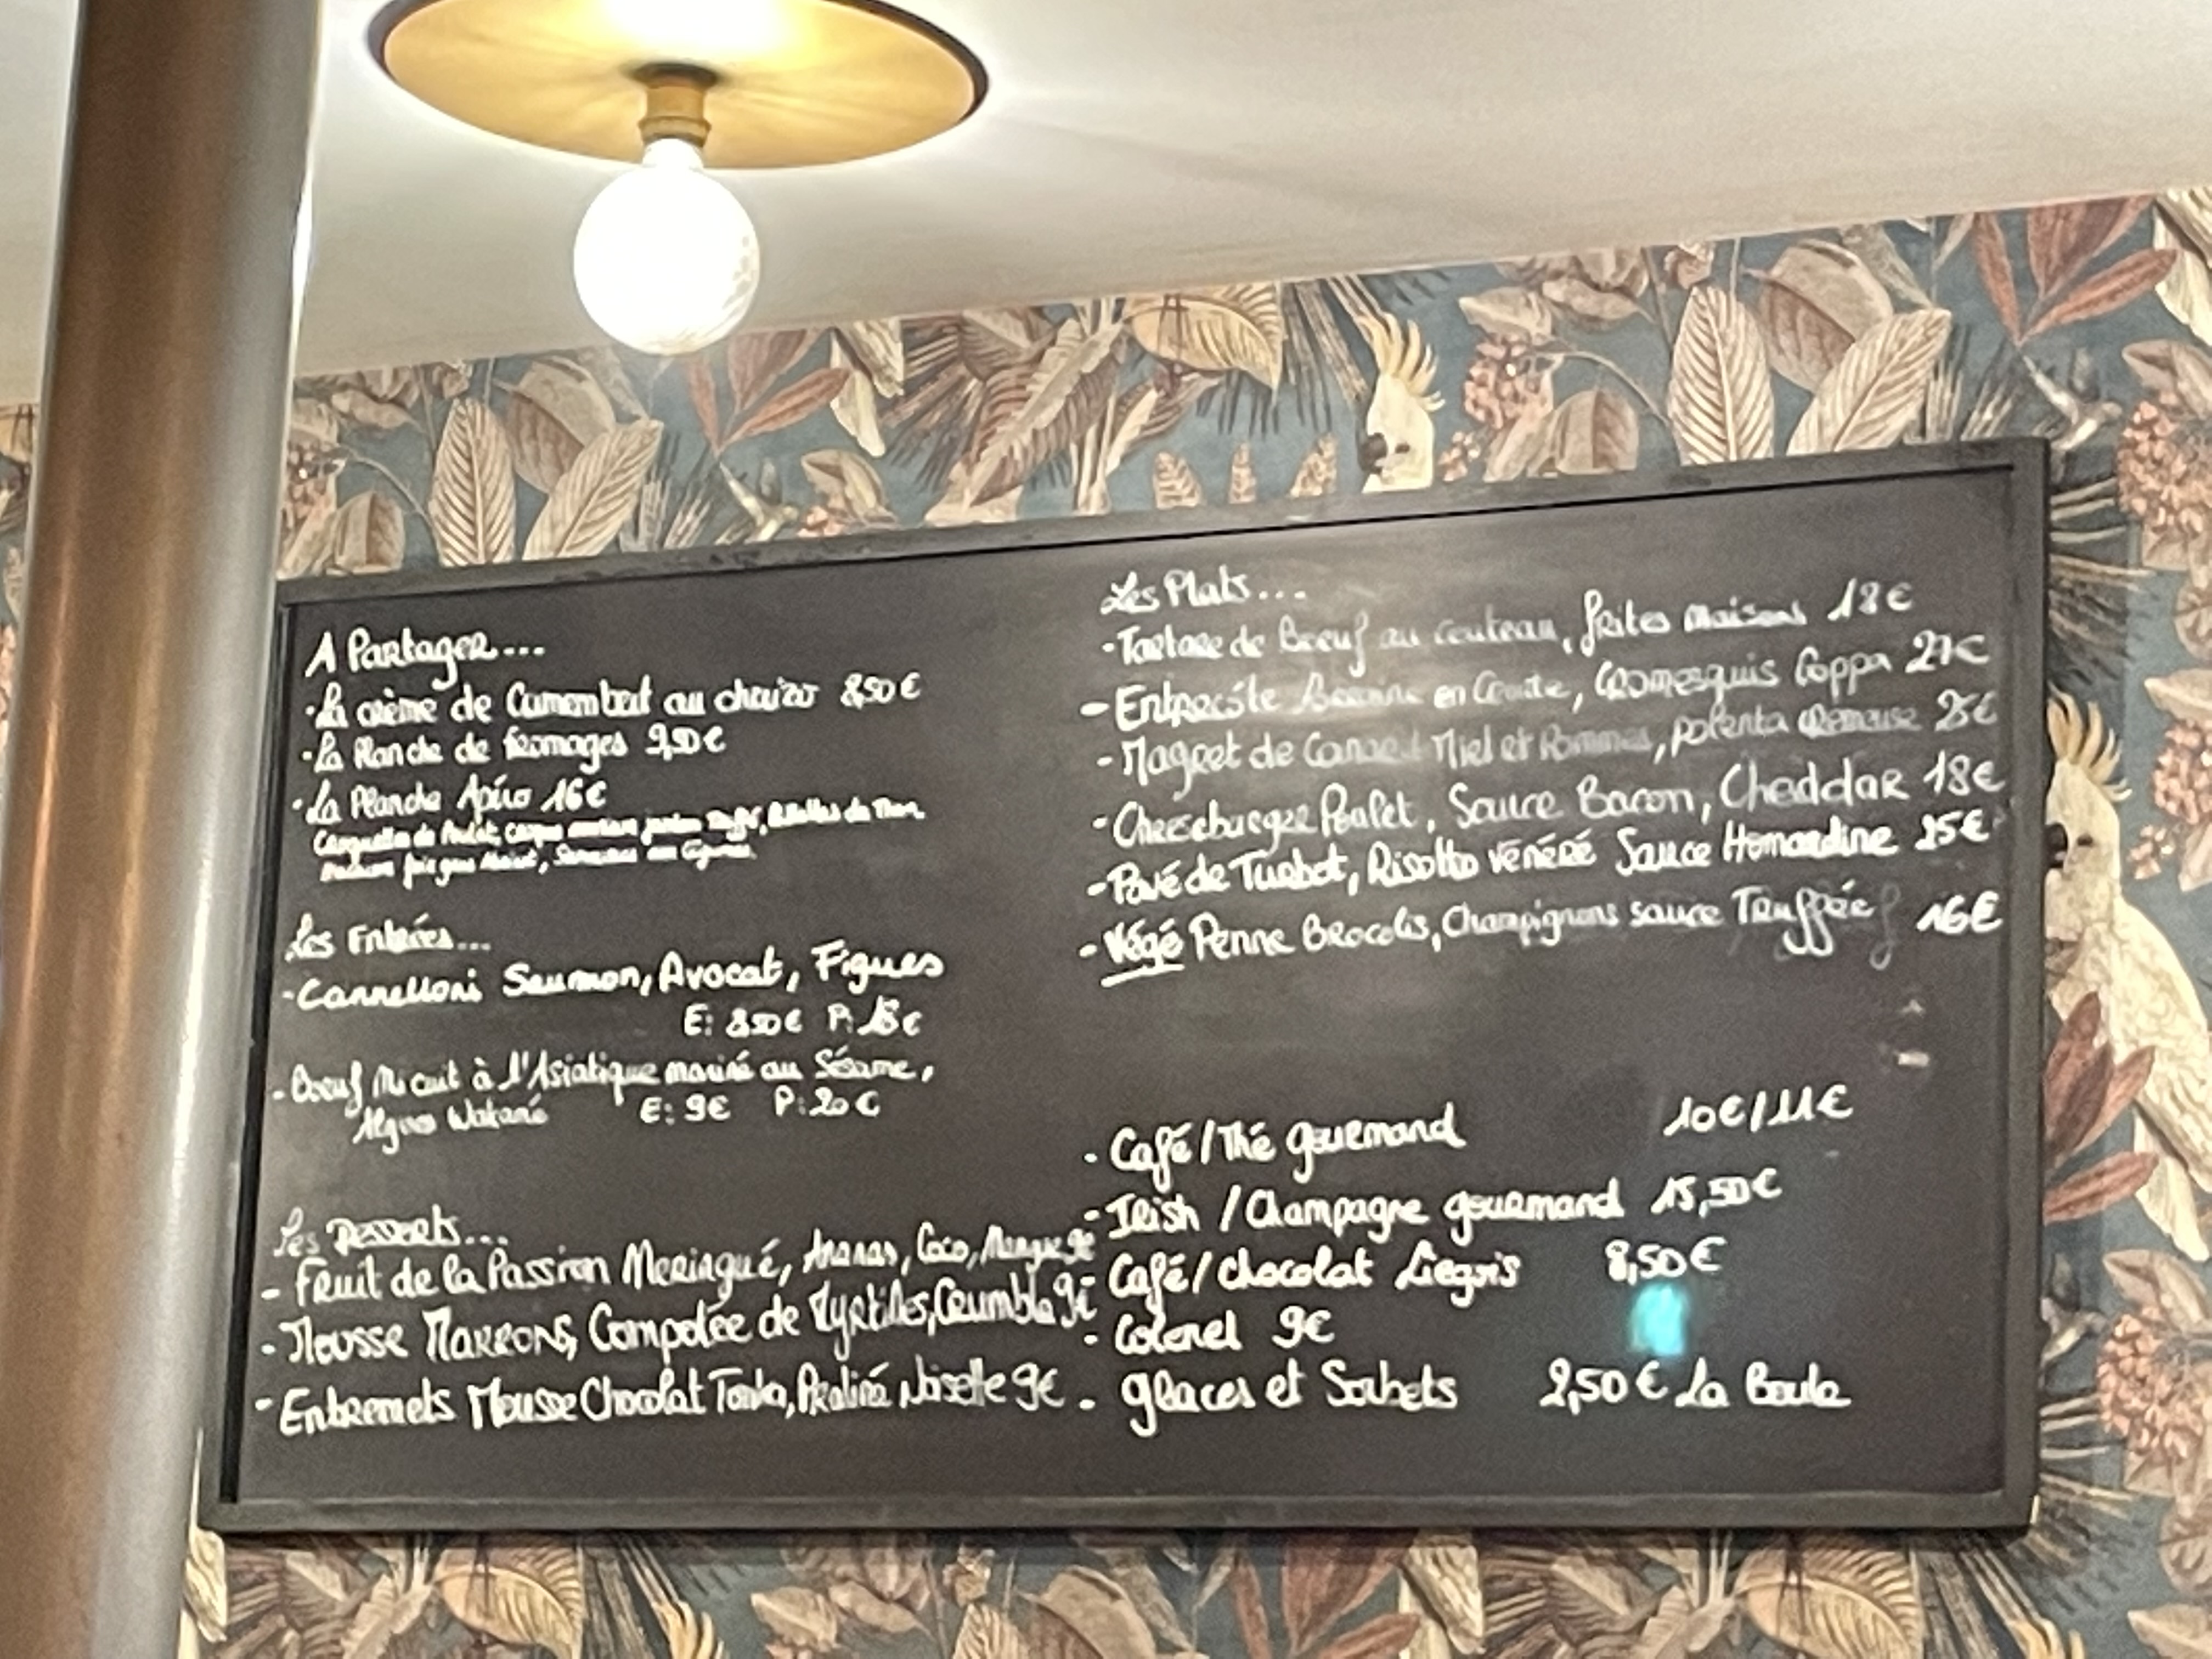 A Partager...
- La crème de Camembert au chorizo 8,50€
- La Planche de fromages 9,50€
- La Planche Apéro 16€
Les Entrées...
- Cannelloni Saumon, Avocat, Figues
E: 8,50€ P: 18€
- Boeuf Mi cuit à l'Asiatique mariné au Sésame,
Algues Wakamé E: 9€ P: 20€
Les Desserts...
- Fruit de la Passion Meringué, Ananas, Coco, Mangue 9€
- Mousse Marrons, Compotée de Myrtilles, Crumble 9€
- Entremets Mousse Chocolat Tonka, Praliné Noisette 9€
Les Plats...
- Tartare de Boeuf au couteau, frites maisons 18€
- Entrecôte en Croûte, Cromesquis Coppa 27€
- Magret de Canard Miel et Pommes, polenta crémeuse 25€
- Cheeseburger Poulet, Sauce Bacon, Cheddar 18€
- Pavé de Turbot, Risotto vénéré Sauce Homardine 25€
- Végé Penne Brocolis, Champignons sauce Truffée 16€
- Café/Thé gourmand 10€/11€
- Irish / Champagne gourmand 15,50€
- Café/chocolat Liegois 8,50€
- Colonel 9€
- glaces et Sorbets 2,50€ La Boule